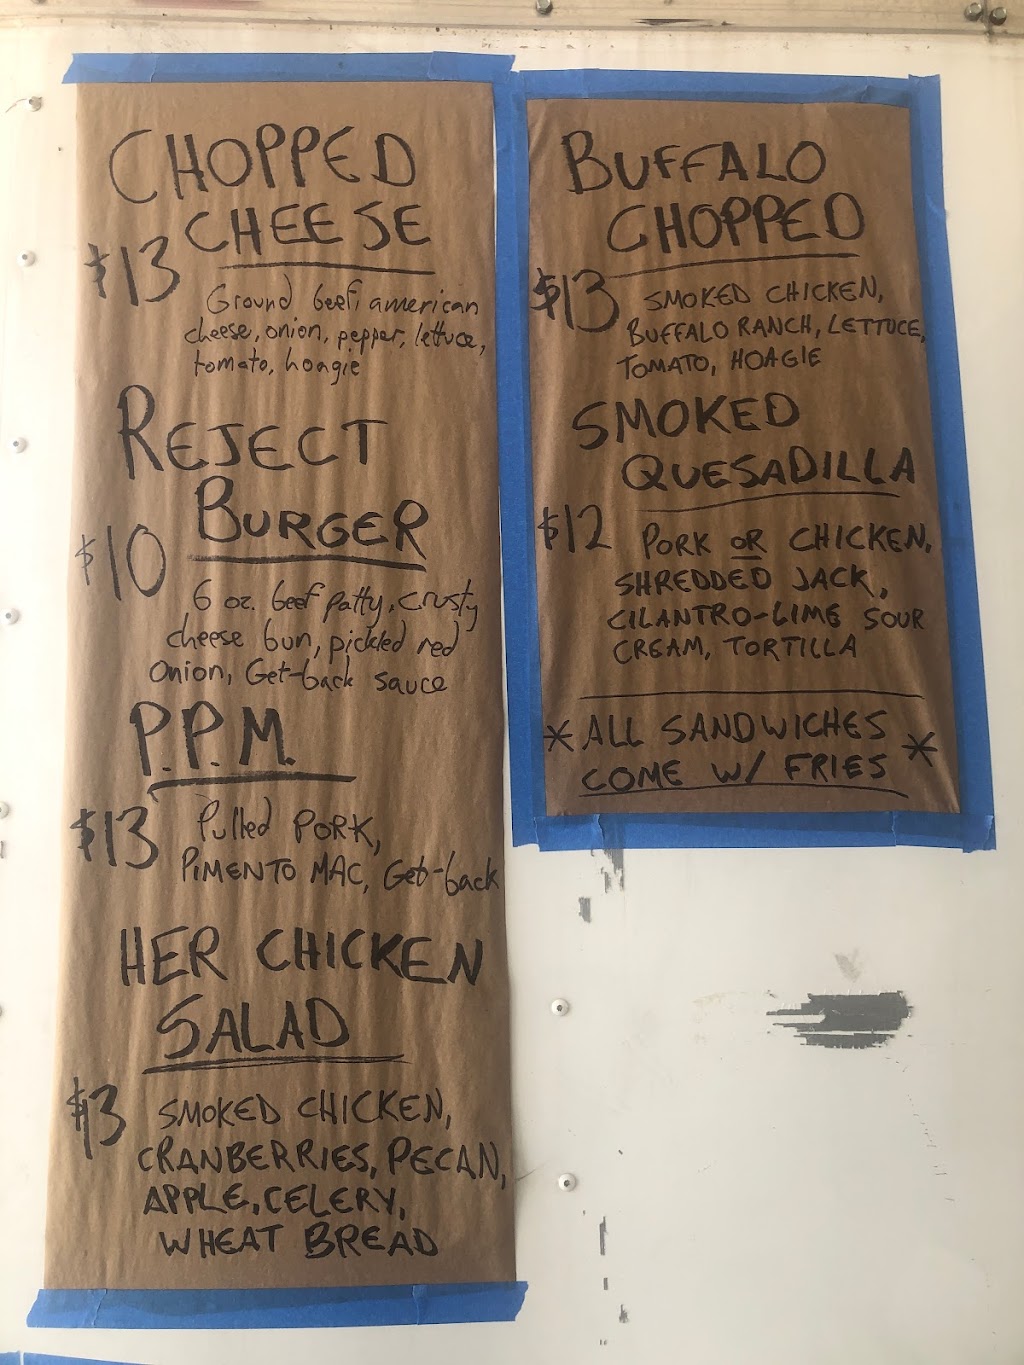 CHOPPED
CHEESE
$13
Ground beef, american
cheese, onion, pepper, lettuce,
tomato, hoagie
REJECT
BURGER
$10
6 oz. beef patty, crusty
cheese bun, pickled red
onion, Get-back sauce
P.P.M.
$13
Pulled PORK,
PIMENTO MAC, Get-back
HER CHICKEN
SALAD
$13
SMOKED CHICKEN,
CRANBERRIES, PECAN,
APPLE, CELERY,
WHEAT BREAD
BUFFALO
CHOPPED
$13
SMOKED CHICKEN,
BUFFALO RANCH, LETTUCE,
TOMATO, HOAGIE
SMOKED
QUESADILLA
$12
PORK OR CHICKEN,
SHREDDED JACK,
CILANTRO-LIME SOUR
CREAM, TORTILLA
*ALL SANDWICHES*
COME W/ FRIES